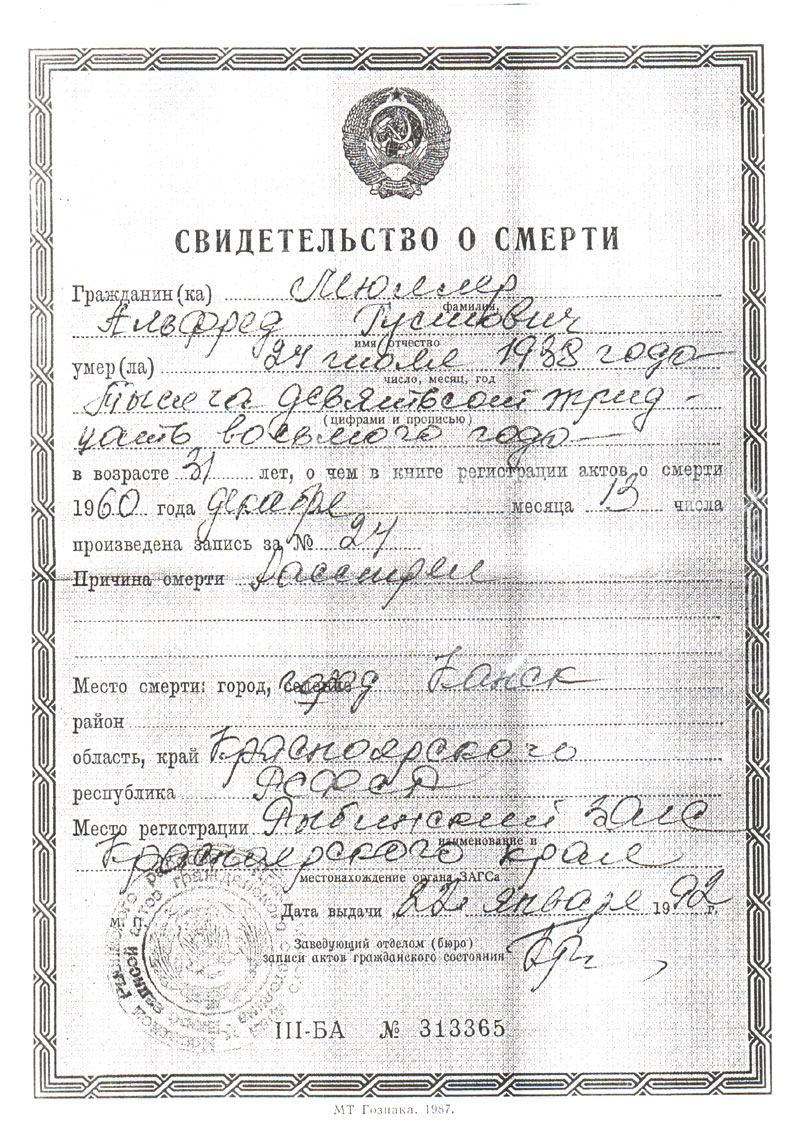 СВИДЕТЕЛЬСТВО О СМЕРТИ
Гражданин(ка) Мюллер
фамилия,
Альфред Густович
имя отчество
умер(ла) 24 июля 1938 года
число, месяц, год
Тысяча девятьсот трид-
(цифрами и прописью)
цать восьмого года
в возрасте 31 лет, о чем в книге регистрации актов о смерти
1960 года декабря месяца 13 числа
произведена запись за № 24
Причина смерти Расстрел
Место смерти: город, селение город Канск
район
область, край Красноярского
республика РСФСР
Место регистрации Рыбинский ЗАГС
наименование и
Красноярского края
местонахождение органа ЗАГСа
М. П.
Дата выдачи „22“ января 1992 г.
Заведующий отделом (бюро)
записи актов гражданского состояния
III-БА № 313365
МТ Гознака. 1987.